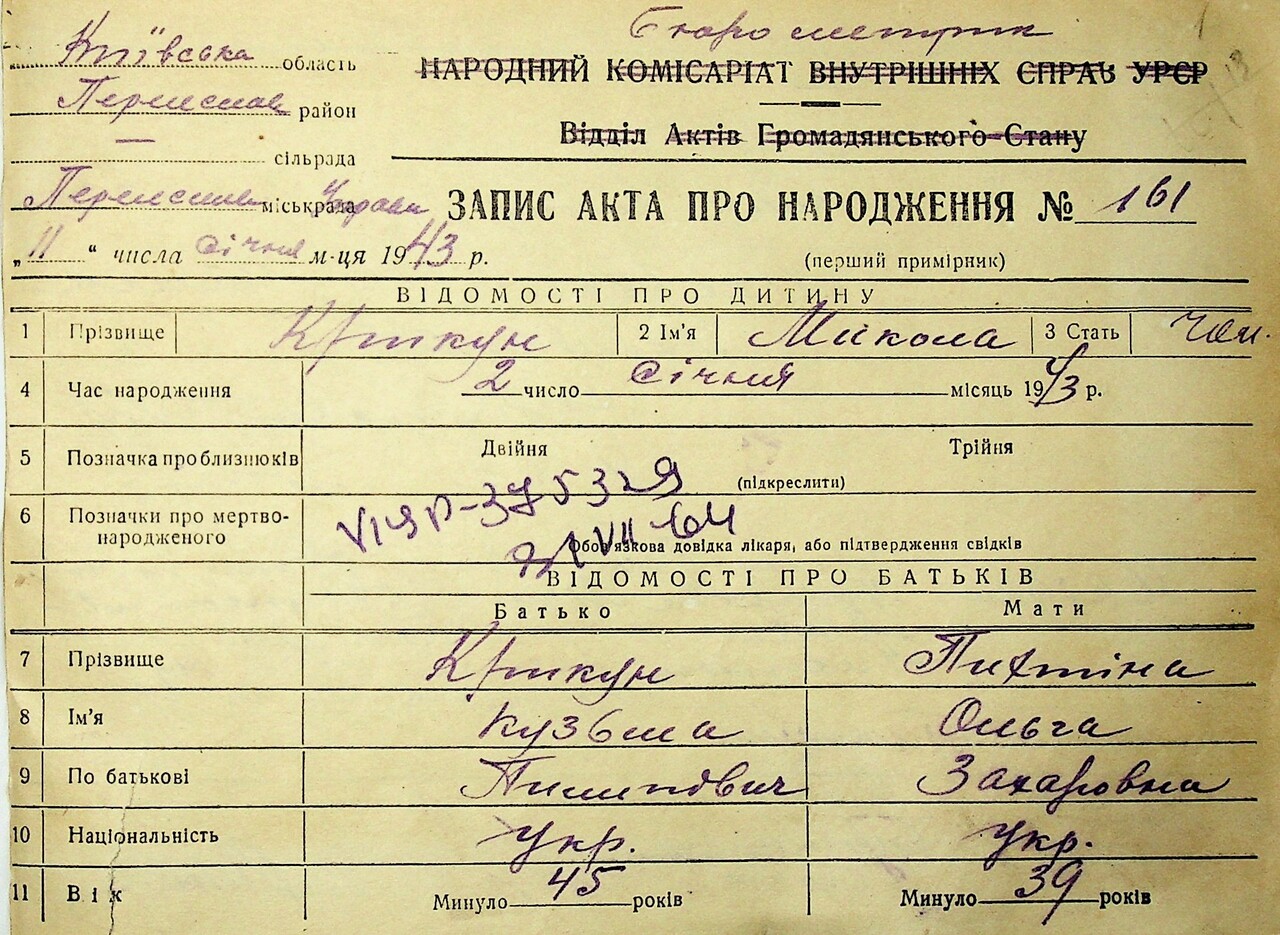 Київська область
Бюро метрик
НАРОДНИЙ КОМІСАРІАТ ВНУТРІШНІХ СПРАВ УРСР
Переяслав район
Відділ Актів Громадянського Стану
— сільрада
Переяслав міськрада Управа
ЗАПИС АКТА ПРО НАРОДЖЕННЯ № 161
„11“ числа січня м-ця 1943 р.
(перший примірник)
ВІДОМОСТІ ПРО ДИТИНУ
1 Прізвище Крикун 2 Ім'я Микола 3 Стать Чол.
4 Час народження 2 число січня місяць 1943 р.
5 Позначка про близнюків Двійня Трійня
(підкреслити)
6 Позначки про мертвонародженого
Обов'язкова довідка лікаря, або підтвердження свідків
ВІДОМОСТІ ПРО БАТЬКІВ
Батько Мати
7 Прізвище Крикун
8 Ім'я Кузьма Ольга
9 По батькові Пилипович Захаровна
10 Національність укр. укр.
11 Вік Минуло 45 років Минуло 39 років